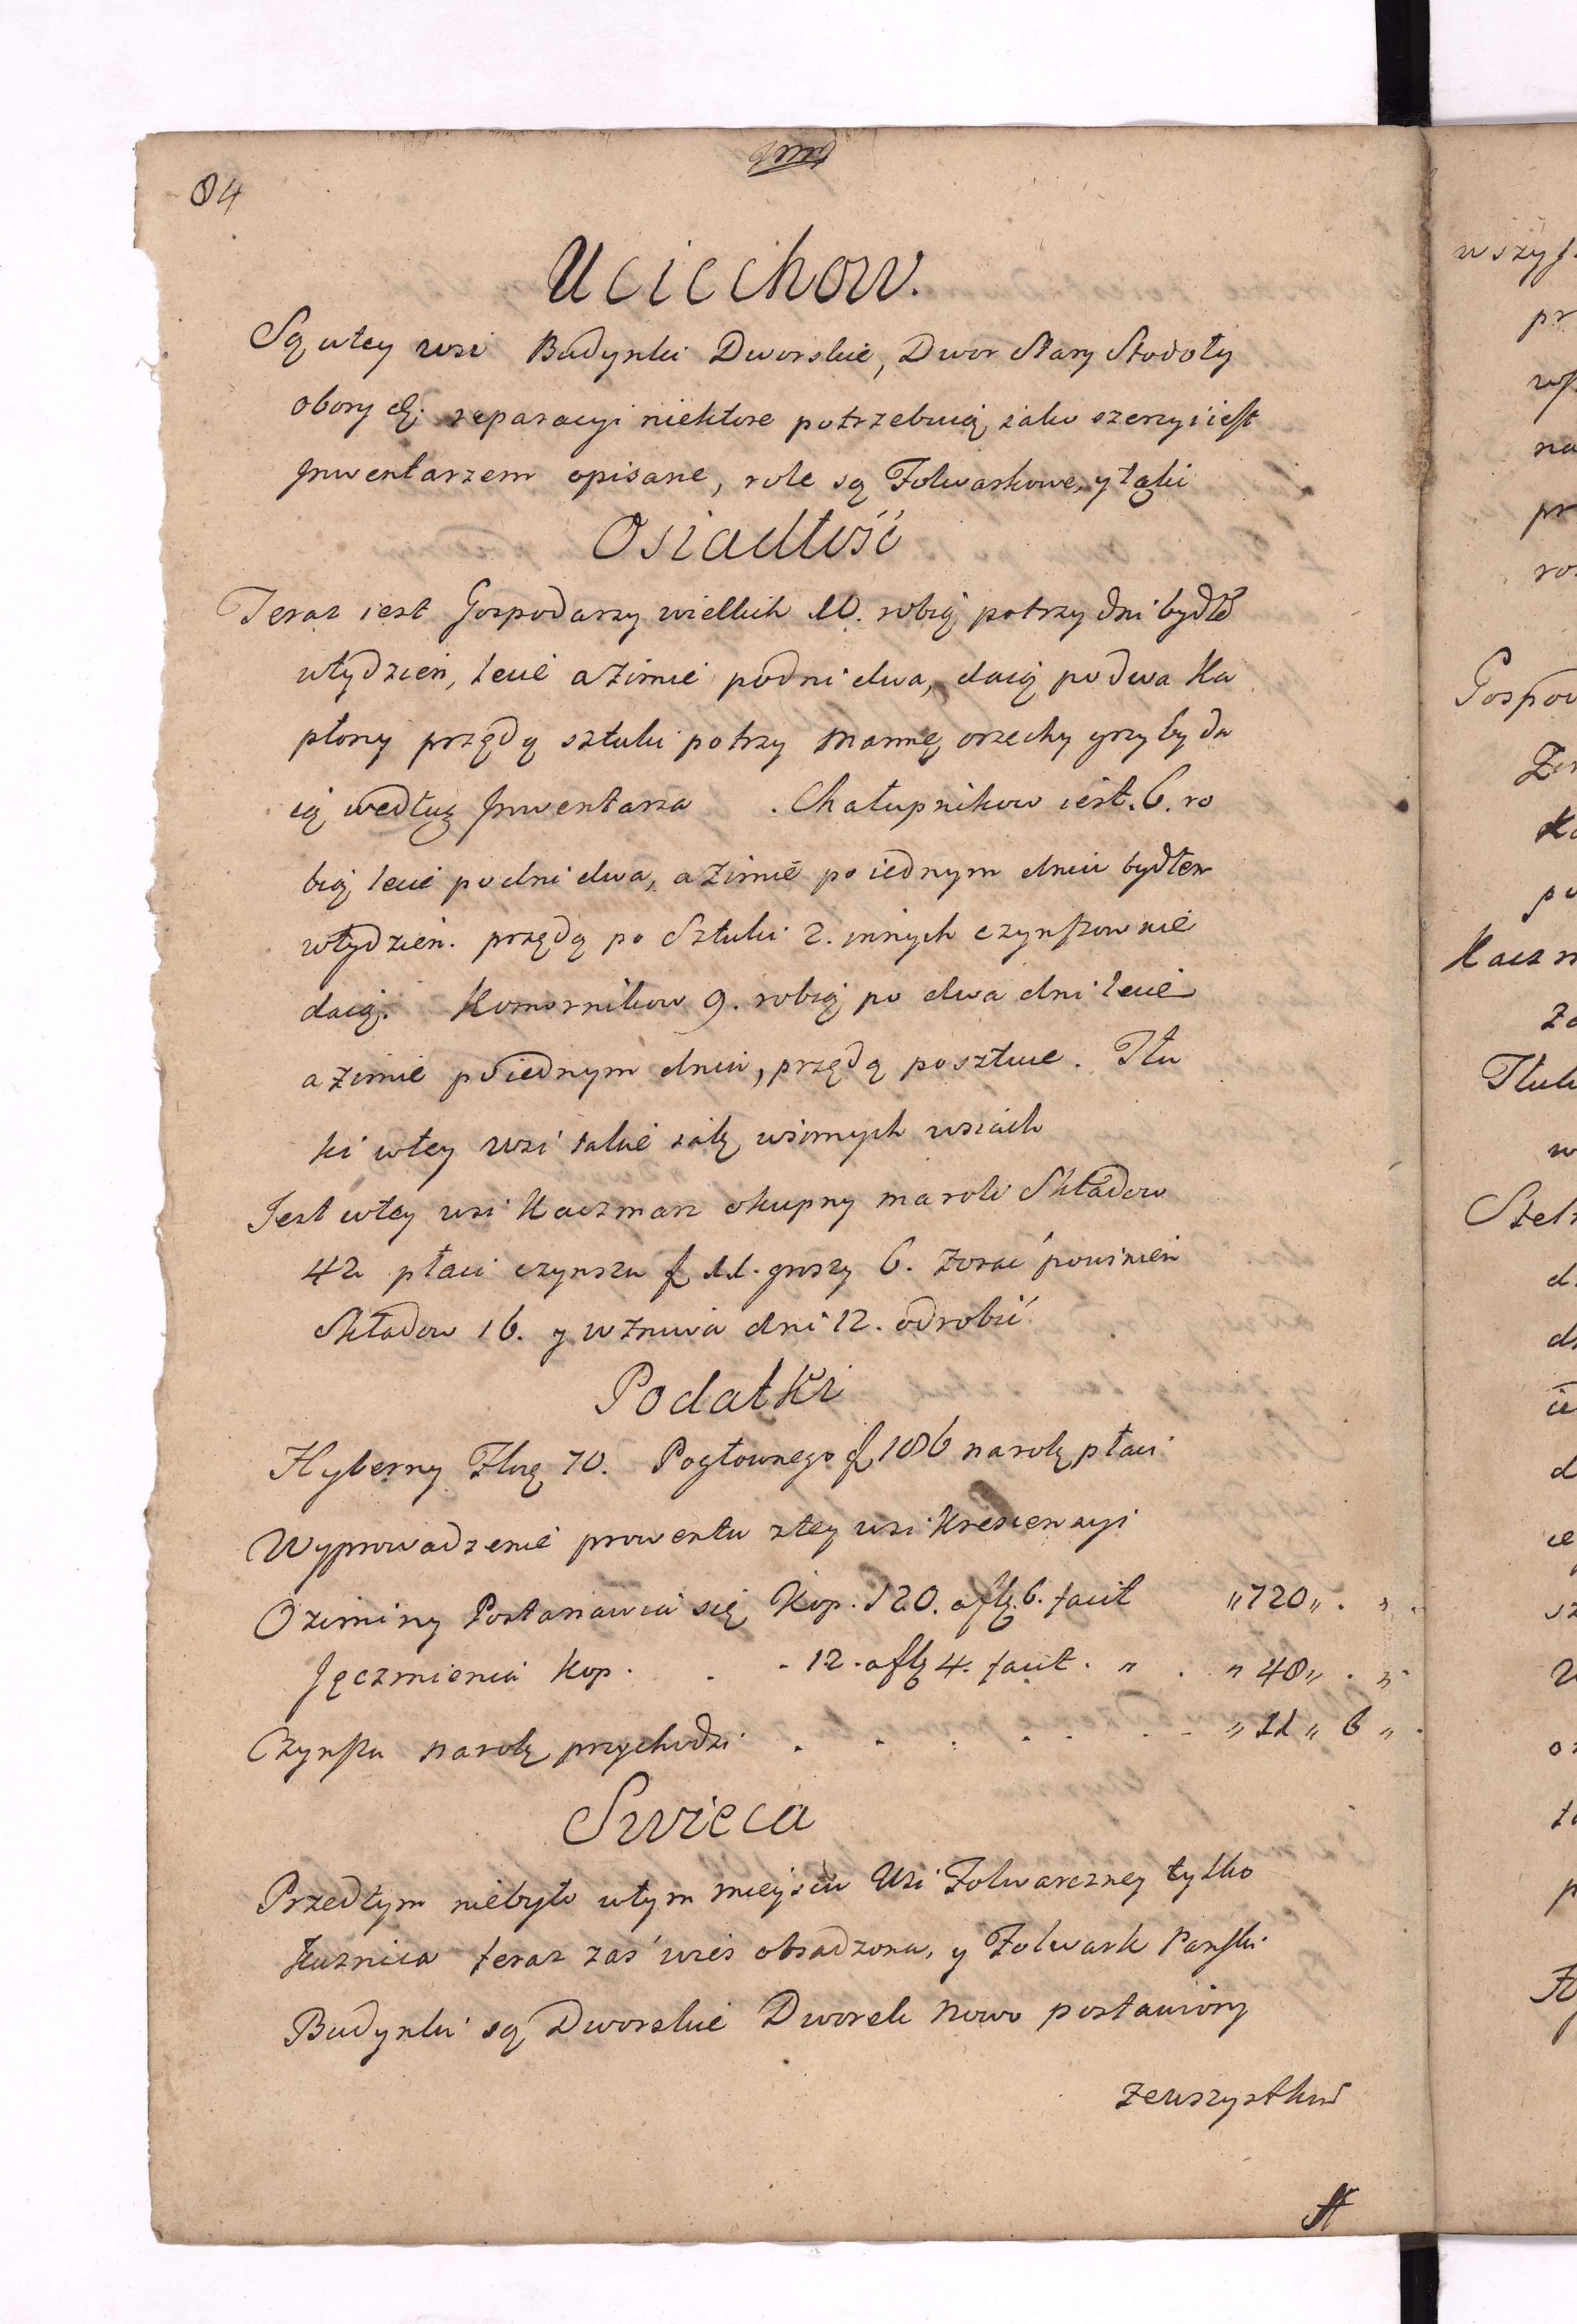 84
Uciechow.
Są wtey wsi Budynki Dworskie, Dwor Stary Stodoły
obory &. reparacyi niektore potrzebuią iako szerzyi iest
Inwentarzem opisane, role są Folwarkowe, y łąki
Osiadłość
Teraz iest Gospodarzy wielkich 10. robią potrzy dni bydłē
wtydzien, lecie a Zimie podni dwa, daią po dwa Ka
płony przędą sztuki potrzy Mannę orzechy grzyby da
ią według Inwentarza . Chałupnikow iest. 6. ro
bią lecie podni dwa, a Zimie po iednym dniu bydłem
wtydzien. przędą po Sztuki 2. innych czynszow nie
daią. Komornikow 9. robią po dwa dni lecie
a zimie poiednym dniu, przędą posztuce. Tłu
ki wtey wsi takie iak winnych wsiach
Jest wtey wsi Kaczmarz okupny ma roli Składow
42 płaci czynszu f 11. groszy 6. zorać powinien
Składow 16. y w żniwa dni 12. odrobić
Podatki
Hyberny Złłrę 70. Pogłownego f 186 narok płaci
Wyprowadzenie prowentu ztey wsi Krescencyi
Oziminy Postanawia się Kop. 120. a fl. 6. facit „ 720 „ . „ .
Jęczmienia Kop. . . 12. a fl 4. facit . „ . „ 48 „ . „
Czynszu narok przychodzi . . . . . . „ 11 „ 6 „ .
Swieca
Przedtym niebyło wtym mieyscu Wsi Folwarczney tylko
Kuznica teraz zaś wieś obsadzona, y Folwark Pański
Budynki są Dworskie Dworek nowo postawiony
zewszystkiē